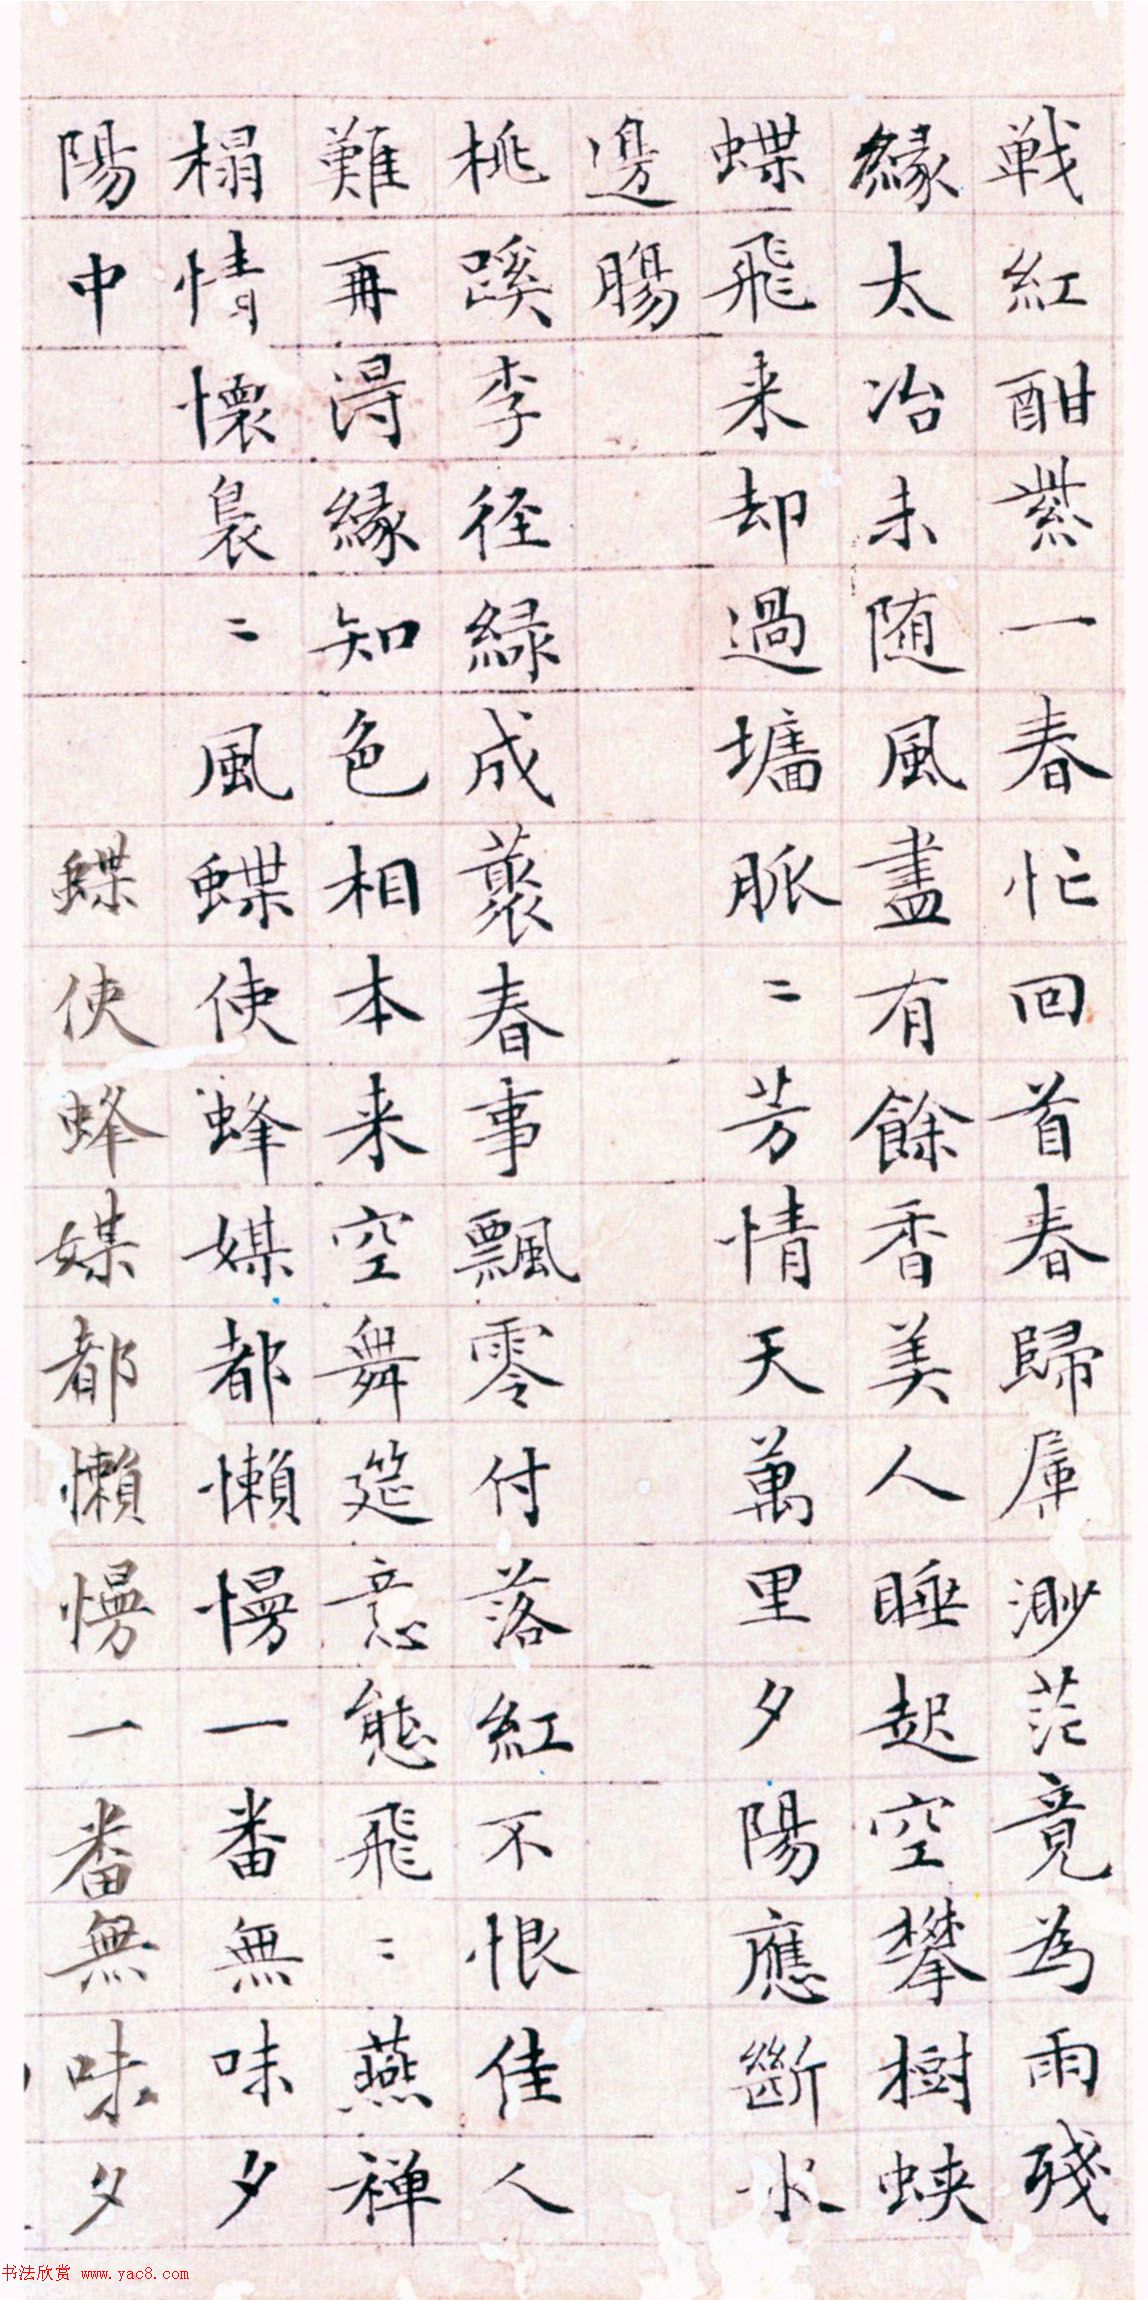 戦紅酣紫一春忙回首春歸屢渺茫竟為雨殘
緣太冶未随風盡有餘香美人睡起空攀樹蛺
蝶飛来却過墻脈〻芳情天萬里夕陽應斷水
邊腸
桃蹊李徑綠成叢春事飄零付落紅不恨佳人
難再得緣知色相本来空舞筵意態飛〻燕禅
榻情懷裊〻風蝶使蜂媒都懶慢一番無味夕
陽中 蝶使蜂媒都懶慢一番無味夕
书法欣赏 www.yac8.com